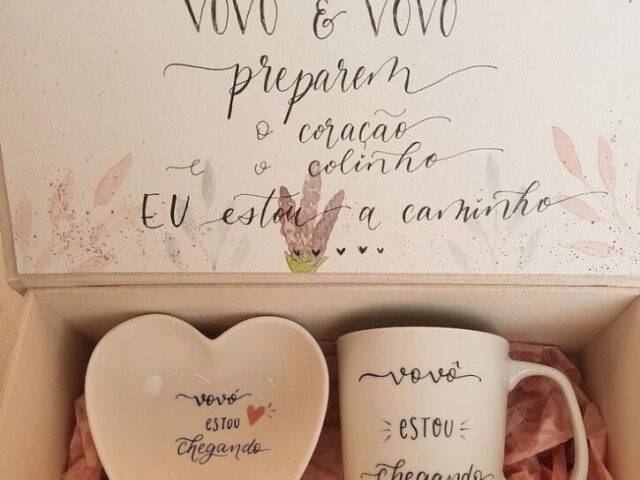 VOVÓ & VOVÔ
preparem
o coração
e o colinho
EU estou a caminho
vovó
ESTOU
chegando
vovô
ESTOU
chegando